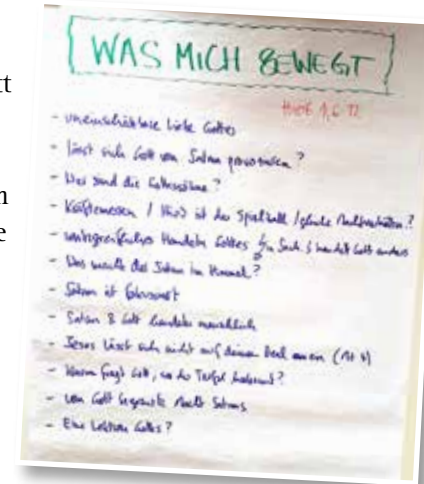 WAS MICH BEWEGT
Hiob 1,6-12
- unermessliche Liebe Gottes
- lässt sich Gott von Satan provozieren?
- Wer sind die Gottessöhne?
- Kräftemessen / Hiob ist der Spielball / gleiche ?
- Handeln Gottes in Sach. 3 handelt Gott anders
- Was macht der Satan im Himmel?
- Satan ist
- Satan & Gott handeln menschlich
- Jesus lässt sich nicht auf diesen Deal ein (Mt 4)
- Warum fragt Gott, wo der Teufel herkommt?
- von Gott begrenzte Macht Satans
- Eine Lektion Gottes?
tt
n
e